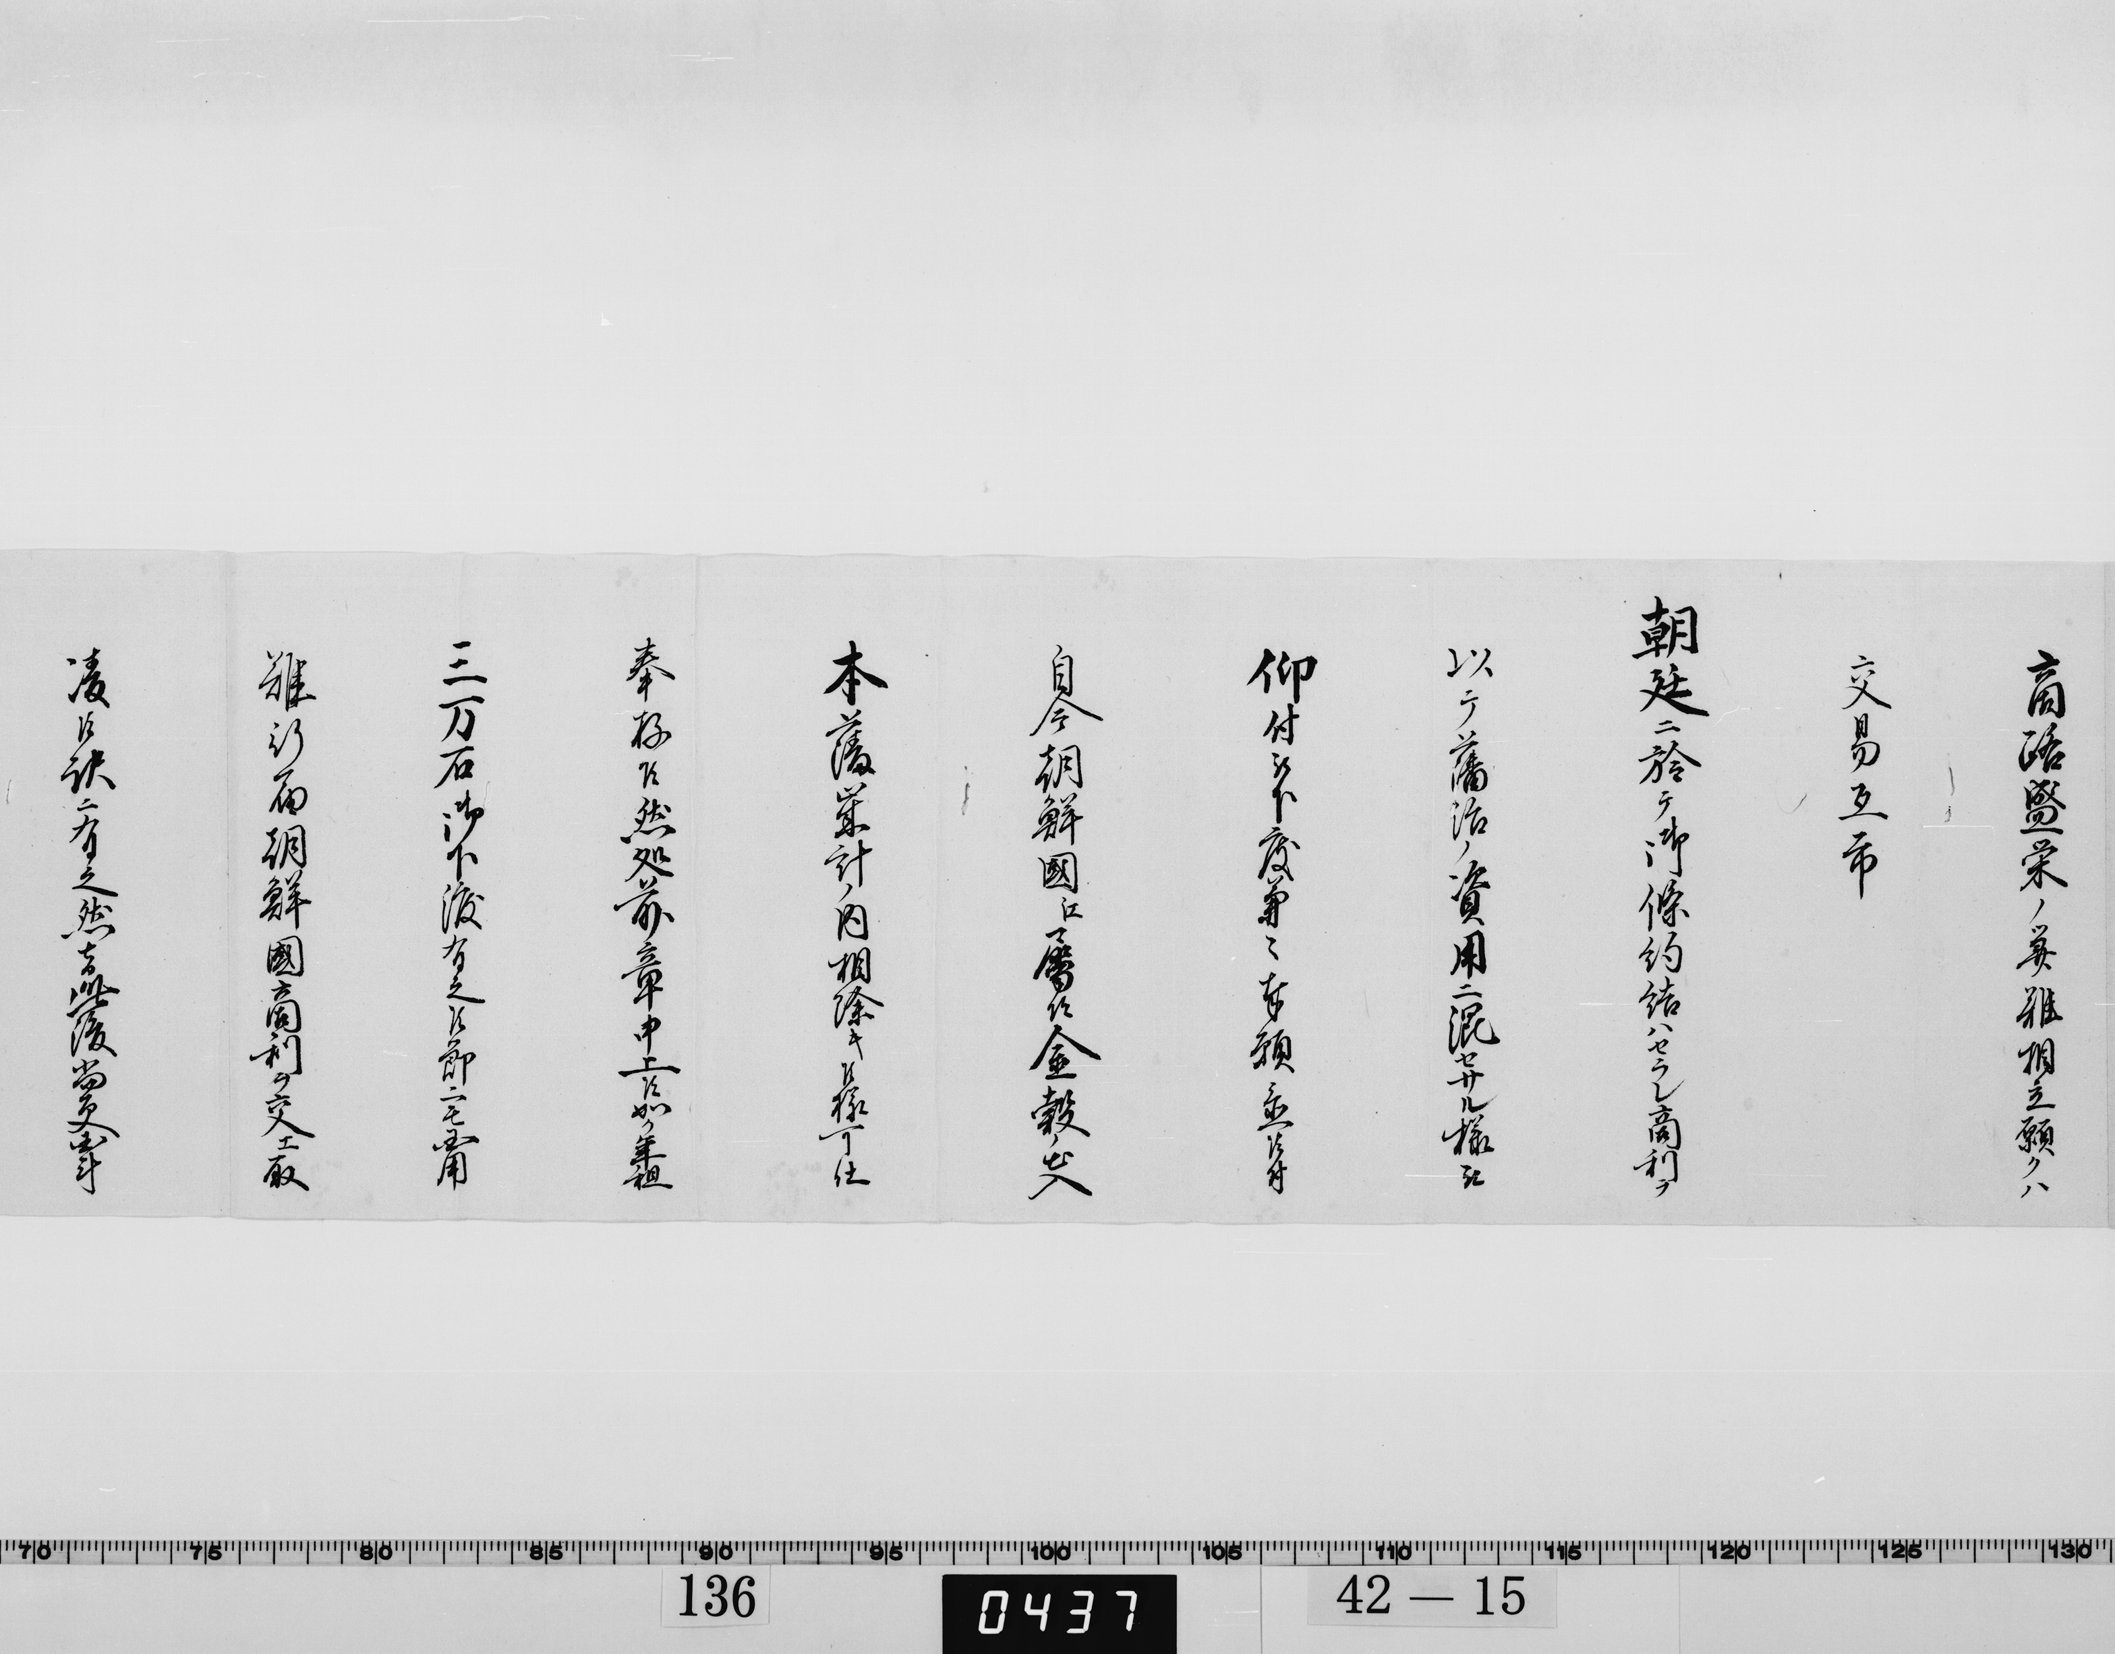 商路盛栄ノ業難相立願クハ
交易互市
朝廷ニ於テ御條約結ハセラレ商利ヲ
以テ藩治ノ資用ニ混セサル様被
仰付被下度兼々奉願立候付
自今朝鮮國江属候金穀ノ出入
本藩歳計ノ内相除キ候様可仕
奉存候然処前章申上候如ク年租
三万石御下渡有之候節ニモ國用
難行届朝鮮國商利ヲ交工取
凌候訣ニ有之然ル此後尚更
70 75 80 85 90 95 100 105 110 115 120 125 130
136
0437
42-15